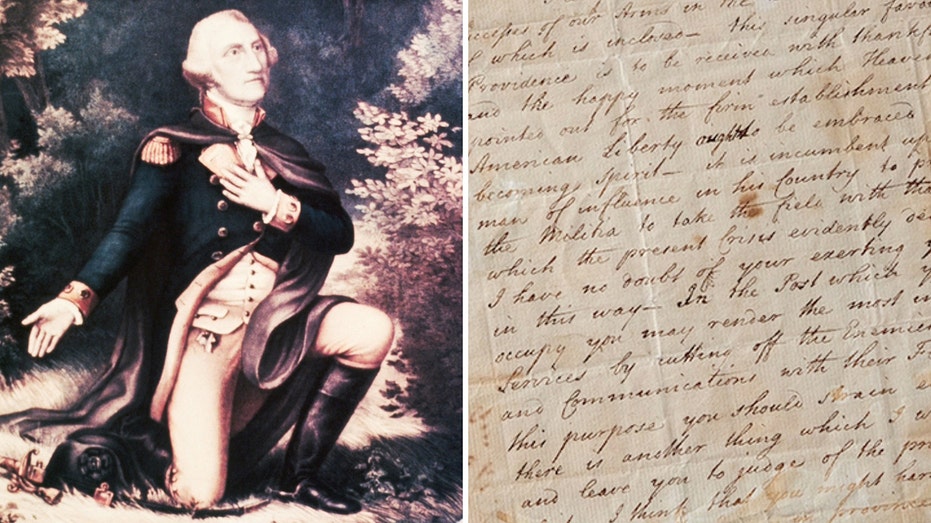 ccess of our Arms in the
of which is inclosed – this singular favou
Providence is to be received with thankf
and the happy moment which Heaven
pointed out for the firm establishment
American Liberty ought to be embraced
becoming spirit – it is incumbent up
man of influence in his Country to p
the Militia to take the field with tha
which the present Crisis evidently de
I have no doubt of your exerting y
in this way – In the Post which y
occupy you may render the most im
Services by cutting off the Enemies
and Communications with their F
this purpose you should strain e
there is another thing which I w
and leave you to judge of the pr
I think that you might har
provinc